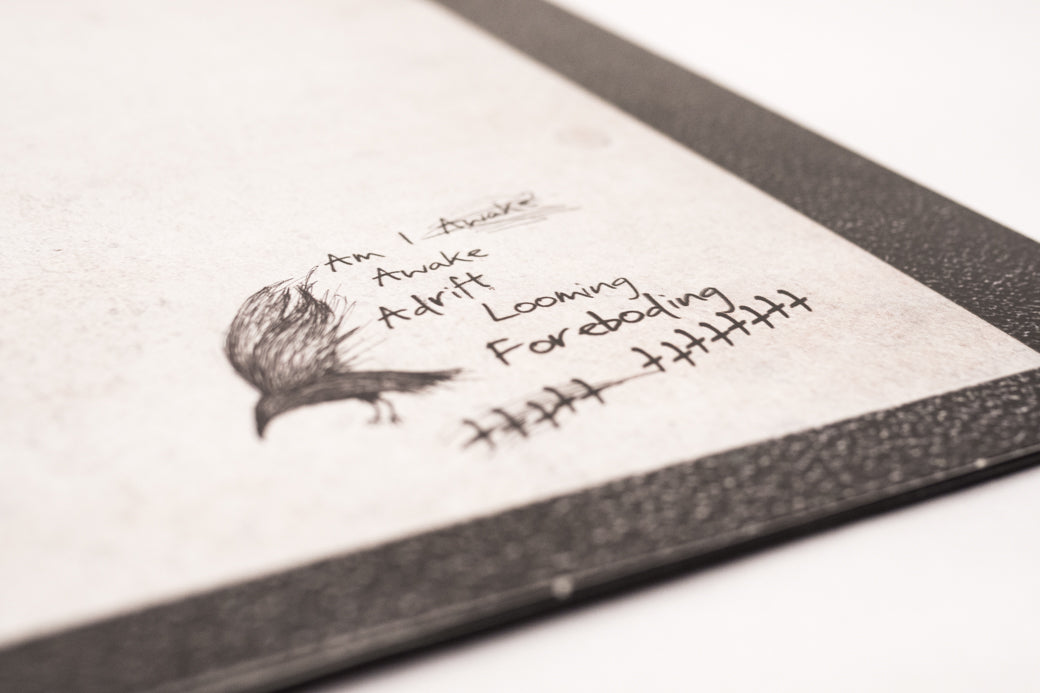 Am I Awake
Awake
Adrift
Looming
Foreboding